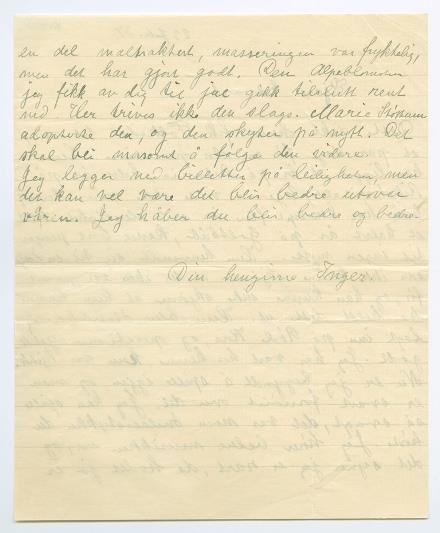 en del maltraktert, masseringen var fryktelig,
men det har gjort godt. Den Alpeblomsten
jeg fikk av dig til jul gikk tilslutt rent
ned. Her trives ikke den slags. Marie
adopterte den, og den skyter på nytt. Det
skal bli morsomt å følge den videre.
Jeg legger ned billetter på leiligheter, men
det kan vel være det blir bedre utover
våren. Jeg håber du blir bedre og bedre.
Din hengivne Inger.